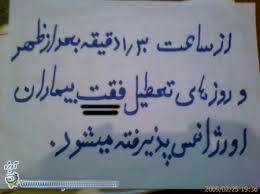 از ساعت ۱٫۳۰ دقیقه بعد از ظهر
و روزهای تحطیل فقت بیماران
اورژانسی پذیرفته میشود.
2009/02/25 18:36